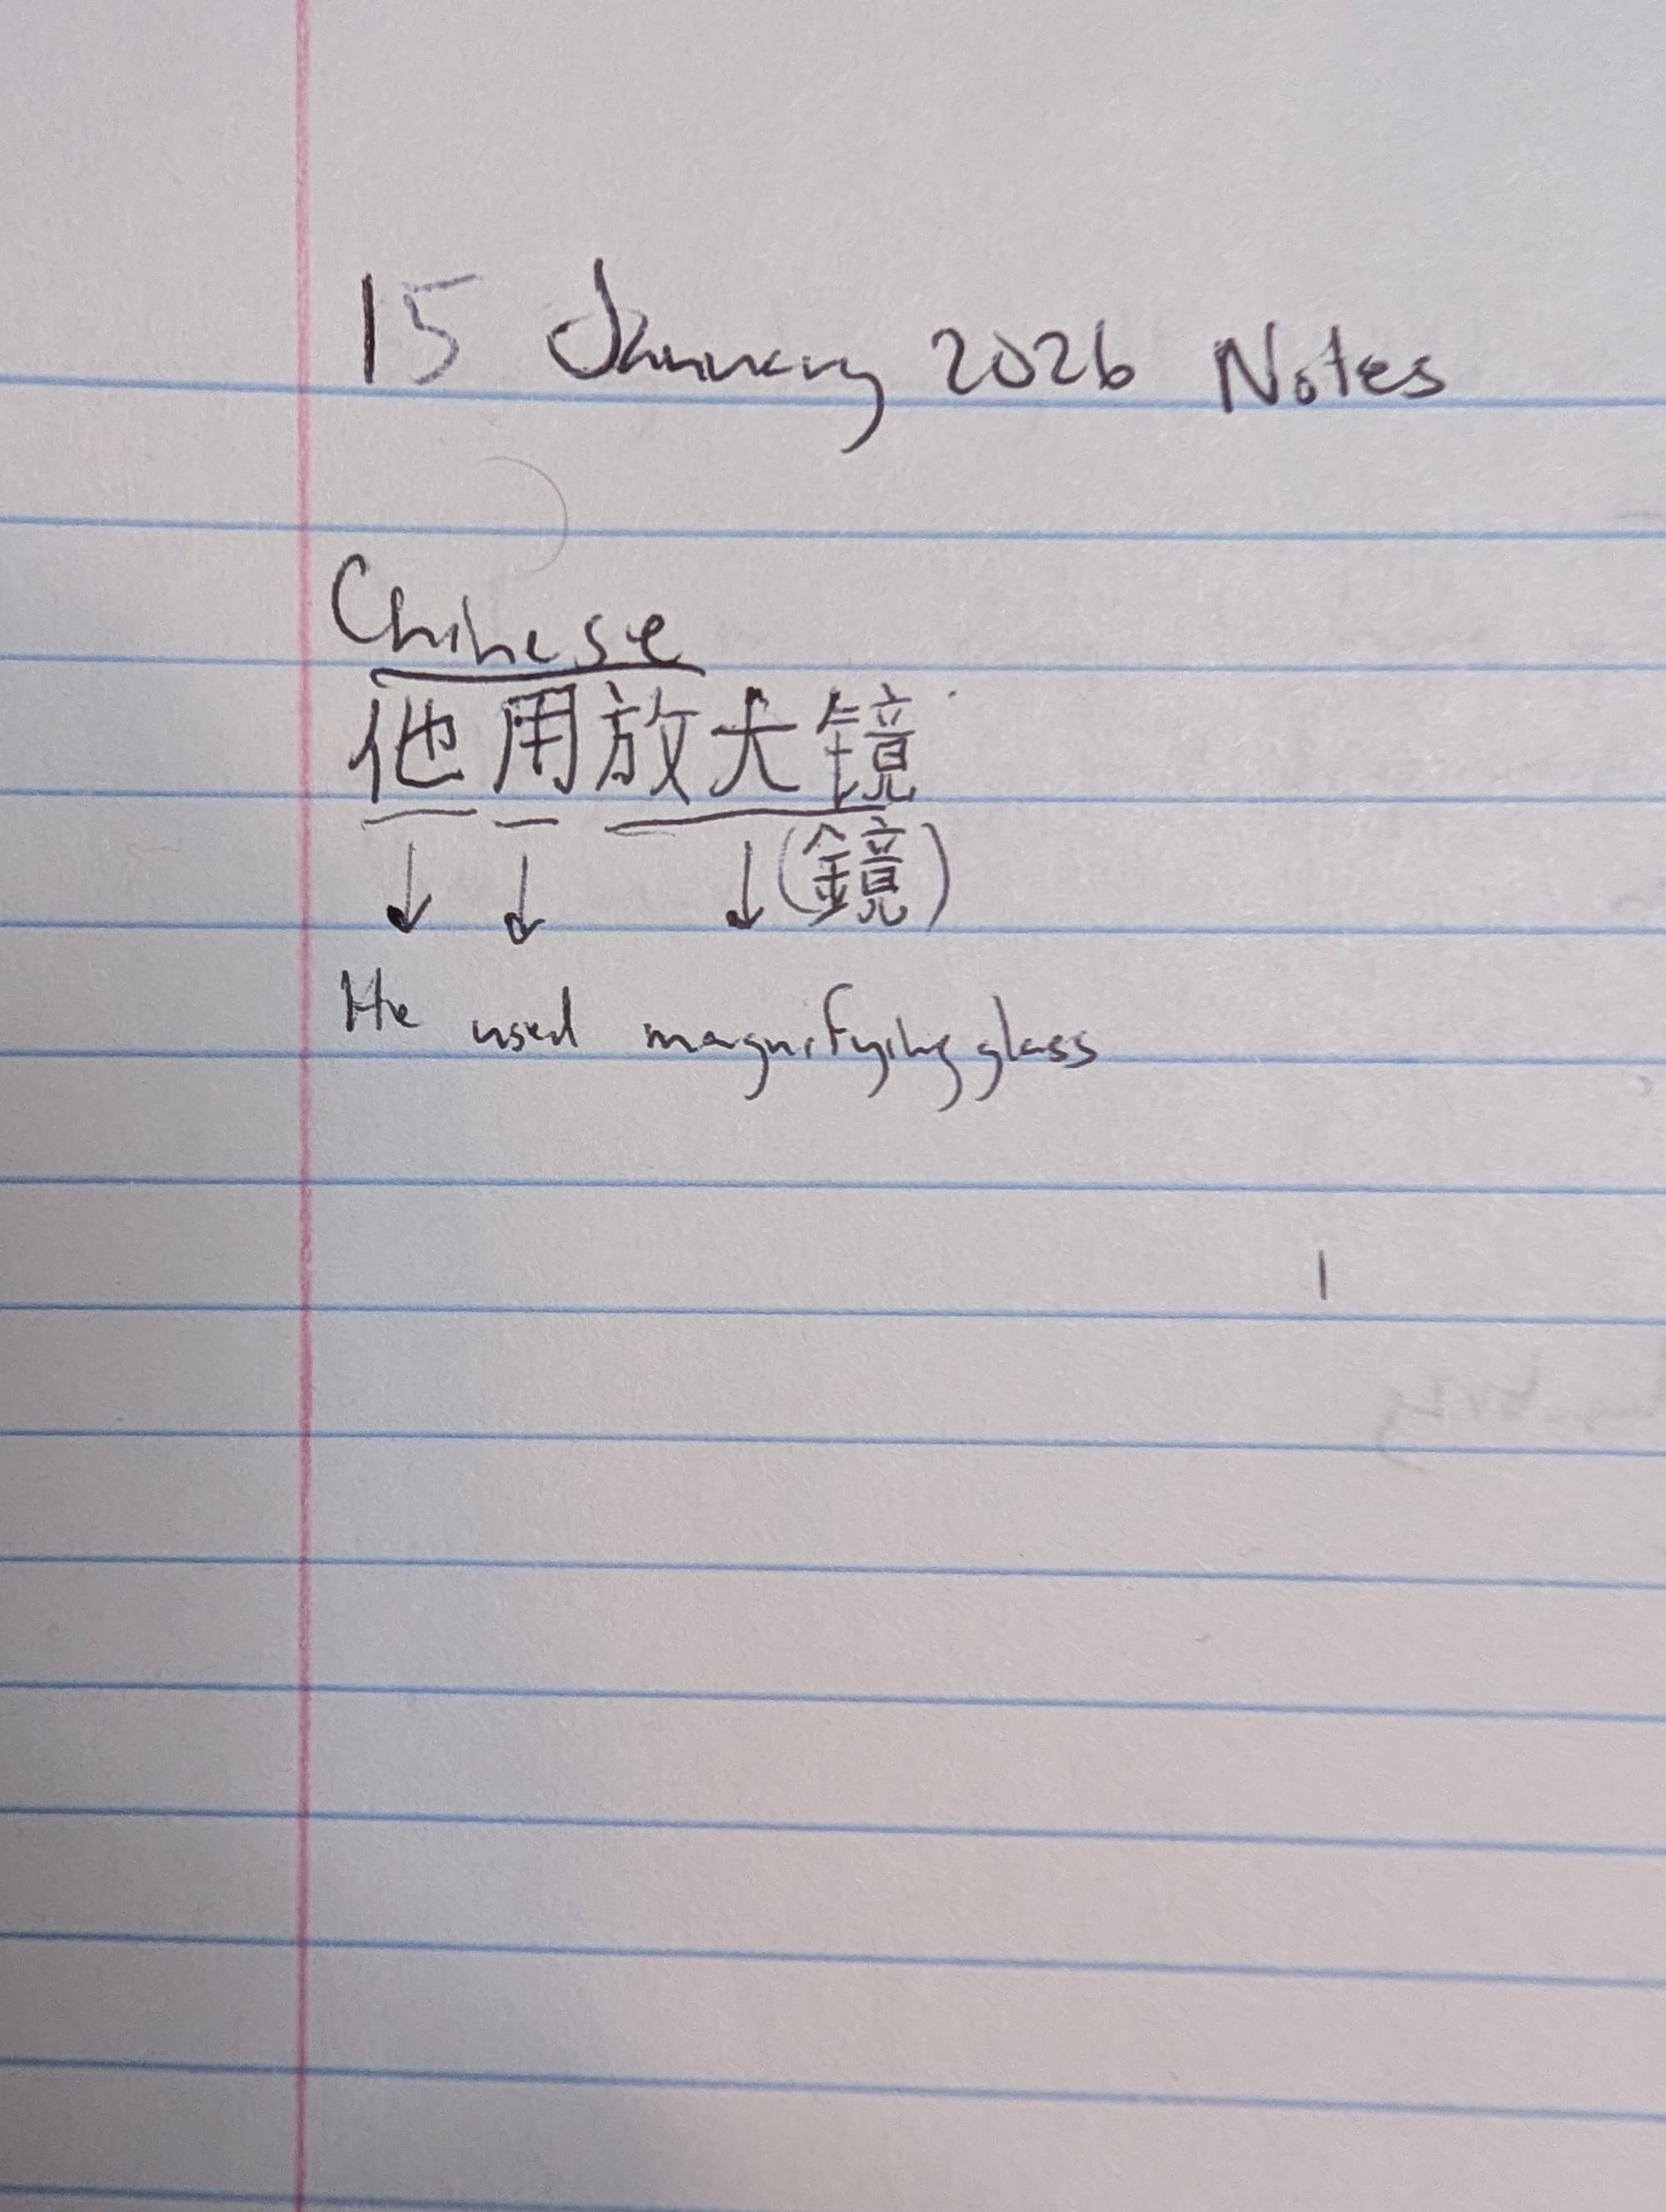 15 January 2026 Notes
Chinese
他用放大镜
↓ ↓ ↓(鏡)
He used magnifying glass